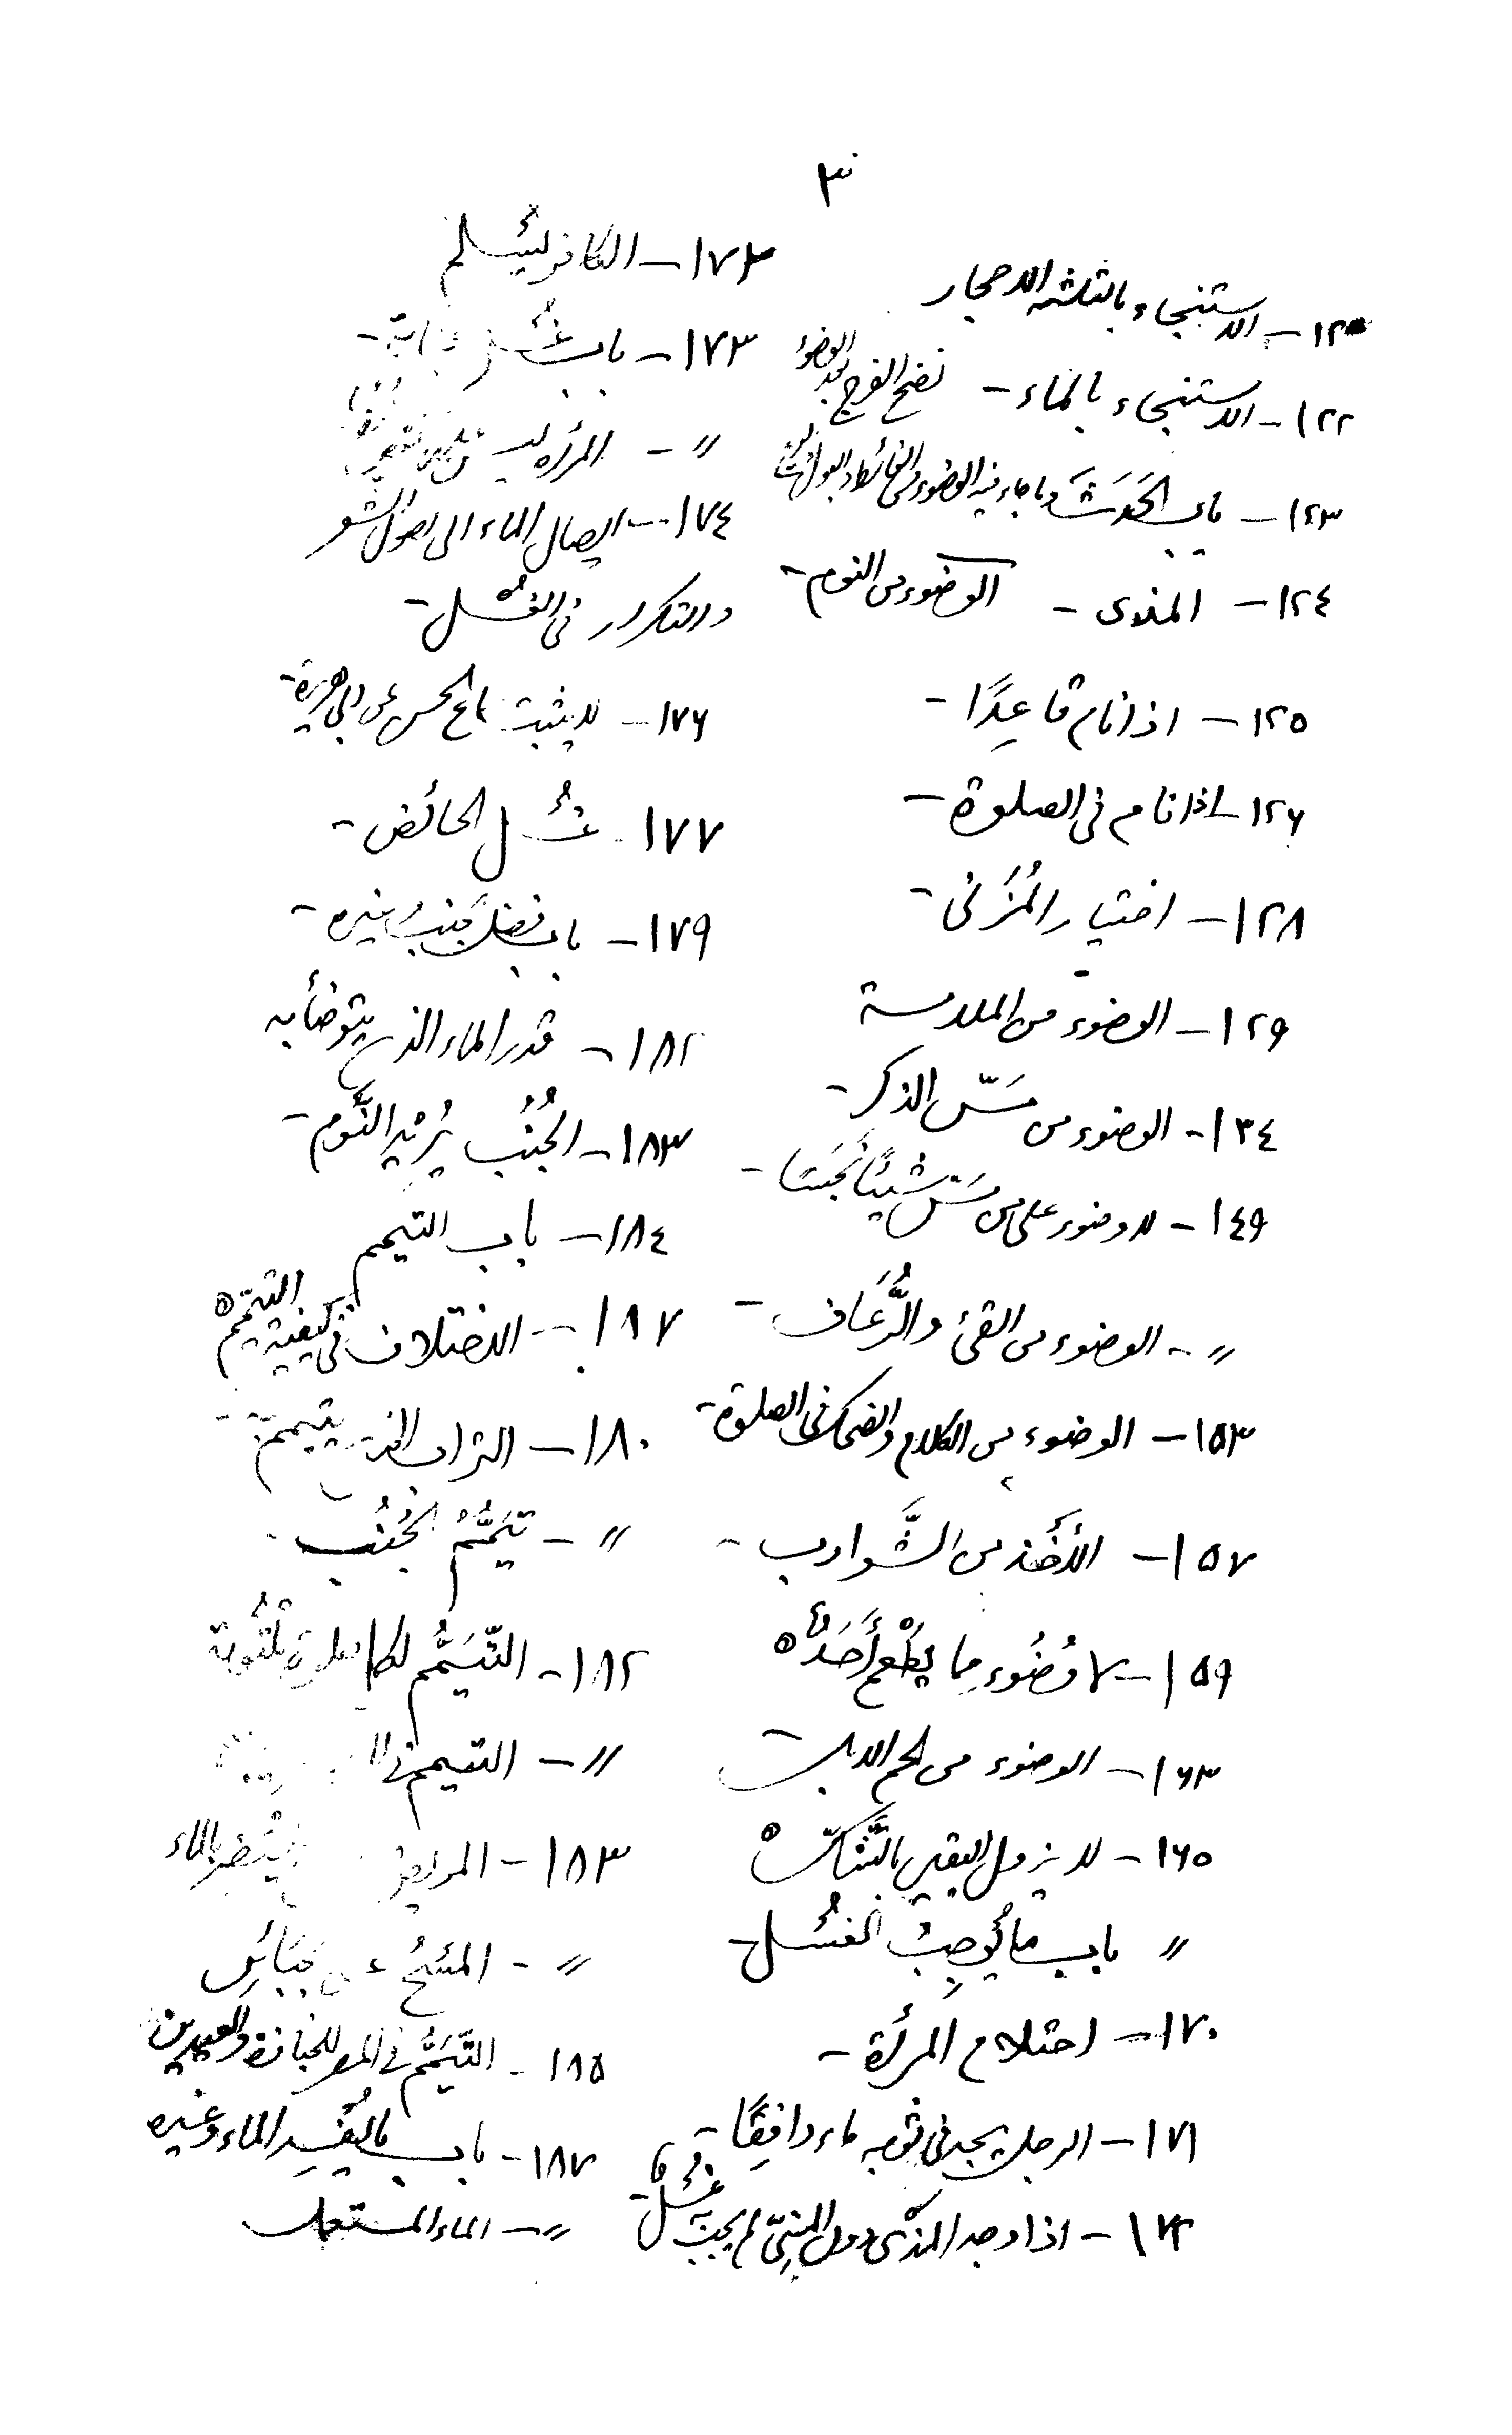 ٣
١٢٠ـ الاستنجاء بالثلثة الاحجار
١٢٢ـ الاستنجاء بالماء ـ نضح الفرج بعد الوضوء
١٢٣ـ باب الحَدَث وما جاء فيه الوضوء من الغائط والبول
١٢٤ـ المذى ـ الوضوء من النوم ـ
١٢٥ـ اذا نام قاعِدًا ـ
١٢٦ـ اذا نام فى الصلوة ـ
١٢٨ـ اختيار المُزَنى ـ
١٢٩ـ الوضوء من الملامسة
١٣٤ـ الوضوء من مَسّ الذكر ـ
١٤٩ـ لا وضوء على من مَسّ شيئًا نَجَسًا ـ
〃 ـ الوضوء من القئ والرُّعَاف ـ
١٥٣ـ الوضوء من الكلام والضحك فى الصلوة ـ
١٥٧ـ الأخذ من الشَّوارب ـ
١٥٩ـ لا وُضُوء مما يَطْعَمُ أَحَدٌ
١٦٣ـ الوضوء من لحم الابل
١٦٥ـ لا يزول اليقين بالشَّكّ
〃 باب ما يُوجِبُ الغسُل ـ
١٧٠ـ احتلام المرأة ـ
١٧١ـ الرجل يجد فى ثوبه ماء دافِقًا ـ
١٧٢ـ اذا وجد المذى دون المَنِىّ لم يجب غسُل
١٧٣ـ الكافر يُسلم
١٧٣ـ باب غُسُل
〃 ـ المرأة
١٧٤ـ ايصال الماء الى اصول الشعر
والتكرار فى الغُسُل ـ
١٧٦ـ لا يثبت سماع الحسن عن ابى هريرة ـ
١٧٧ـ غُسُل الحائض ـ
١٧٩ـ باب فضل جُنب وغيره ـ
١٨٢ـ قدر الماء الذى يتوضأ به
١٨٣ـ الجُنُب يُرِيْد النَّوم ـ
١٨٤ـ باب التيمم
١٨٧ـ الاختلاف فى كيفية التيمّم
١٨٠ـ التراب الذى يتيمم به ـ
〃 ـ تيَمُّمُ الجُنُب ـ
١٨٢ـ التّيَمُّم لكل صلوة مكتُوبة
〃 ـ التيمم فى
١٨٣ـ المريض بالماء
〃 ـ المسْحُ جَبَائِر
١٨٥ـ التّيَمُّم فى المصر للجنازة والعيدين
١٨٧ـ باب ما يُفسِد الماء وغيره
〃 ـ الماء المستعمل